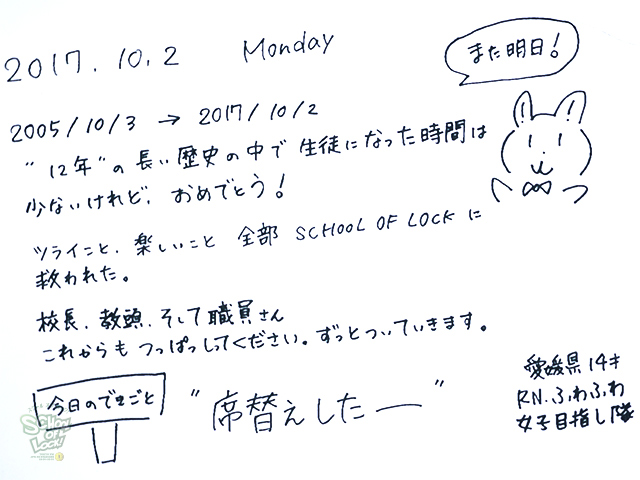 2017.10.2 Monday
また明日!
2005/10/3 → 2017/10/2
"12年"の長い歴史の中で生徒になった時間は
少ないけれど、おめでとう!
ツライこと、楽しいこと 全部 SCHOOL OF LOCK に
救われた。
校長、教頭、そして職員さん
これからも つっぱしってください。ずっとついていきます。
今日のできごと
"席替えしたー"
愛媛県14才
RN.ふわふわ
女子目指し隊
SCHOOL OF LOCK!